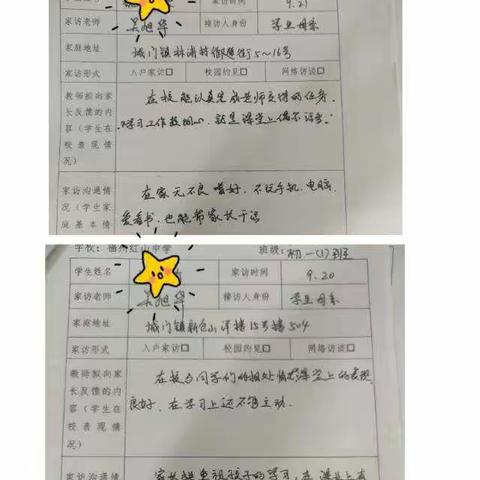 家访时间 9.21
家访老师 吴旭华 接访人身份 学生母亲
家庭地址 城门镇林浦村御道街5~16号
家访形式 入户家访□ 校园约见□ 网络访谈□
教师拟向家 在校能认真完成老师交待的任务,
长反馈的内 学习工作
容(学生在 就是课堂上偶尔
校表现情
况)
家访沟通情 在家无不良嗜好,不玩手机、电脑.
况(学生家 爱看书,也能帮家长干活
庭基本情
学校:福州红山中学 班级:初一(1)班
学生姓名 家访时间 9.20
家访老师 吴旭华 接访人身份 学生母亲
家庭地址 城门镇新仓山 15号楼504
家访形式 入户家访□ 校园约见□ 网络访谈□
教师拟向家 在校与同学们 课堂上的表现
长反馈的内 良好.在学习上还不够主动.
容(学生在
校表现情
况)
家访沟通情 家长 孩子的学习,在